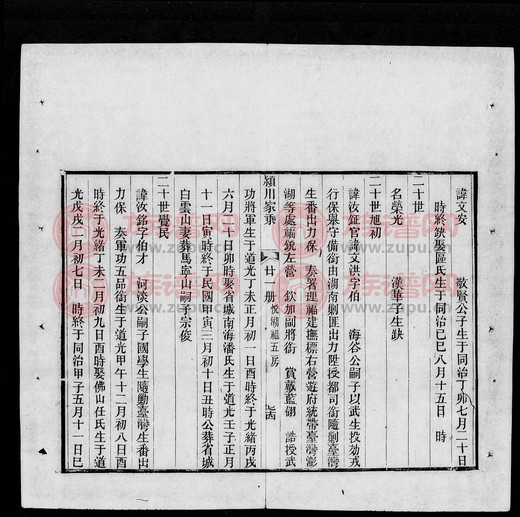 諱文安 敬賢公子生于同治丁卯七月二十日
時終缺娶區氏生于同治己巳八月十五日 時
二十世
名榮光 漢華子生缺
二十世旭初
諱汝鉦官諱文洪字伯 海谷公嗣子以武生投効戎
行保舉守備銜由湖南剿匪出力陞授都司銜隨剿臺灣
生番出力保 奏署理福建撫標右營遊府統帶臺灣澎
湖等處補筑左營 欽加副將銜 賞戴藍翎 誥授武
功將軍生于道光丁未正月初一日酉時終于光緒丙戌
六月二十日卯時娶省城南海潘氏生于道光壬子正月
十一日寅時終于民國甲寅三月初十日丑時公葬省城
白雲山妻葬馬寧山嗣子宗俊
二十世覺民
諱汝銘字伯才 河淡公嗣子國學生隨勦臺灣生番出
力保 奏軍功五品銜生于道光甲午十二月初八日酉
時終于光緒丁未二月初九日酉時娶佛山任氏生于道
光戊戌二月初七日 時終于同治甲子五月十一日巳
潁川家乘
廿一册
五房
族谱网
www.zupu.cn